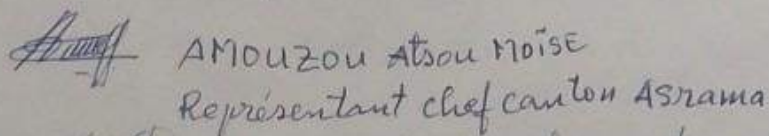 AMOUZOU Atsou Moïse
Représentant chef canton Asrama